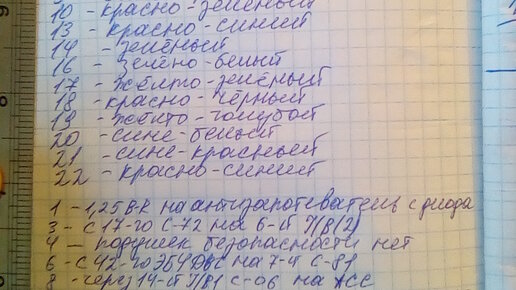 10 - красно-зелёный
13 - красно-синий
14 - зелёный
16 - зелёно-белый
17 - жёлто-зелёный
18 - красно-чёрный
19 - жёлто-голубой
20 - сине-белый
21 - сине-красный
22 - красно-синий
1 - 1,25В-R на антизапотеватель с диода
3 - с 17-го С-72 на 6-й П(8/2)
4 - подушек безопасности нет
6 - с 42-го ЭБУ ДВС на 7-й С-81
8 - через 14-й П/81 С-06 на